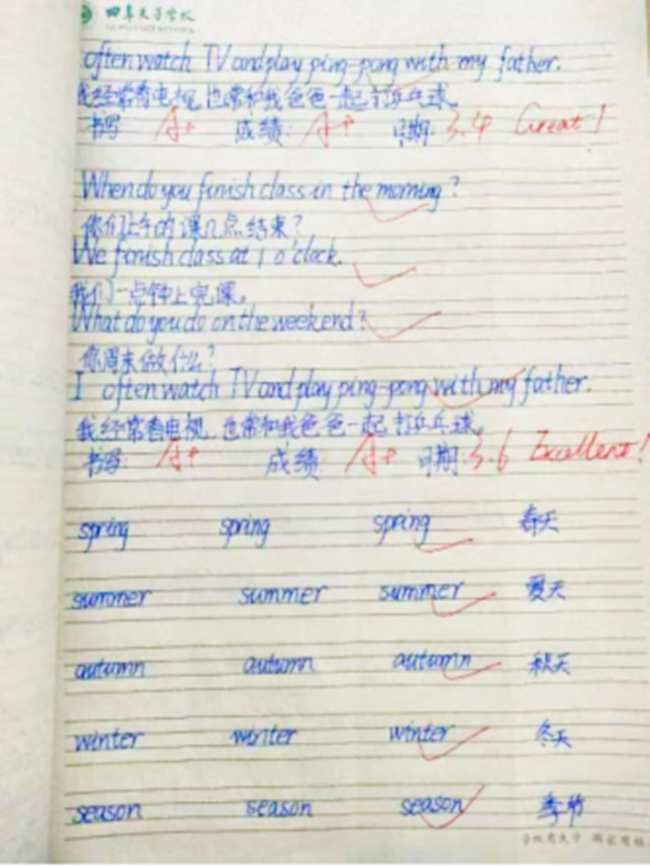 often watch TV and play ping-pong with my father.
我经常看电视,也常和我爸爸一起打乒乓球。
书写: A+ 成绩: A+ 日期: 3.4 Great!
When do you finish class in the morning?
你们上午的课几点结束?
We finish class at 1 o'clock.
我们一点钟上完课。
What do you do on the weekend?
你周末做什么?
I often watch TV and play ping-pong with my father.
我经常看电视,也常和我爸爸一起打乒乓球。
书写: A+ 成绩: A+ 日期: 3.6 Excellent!
spring spring spring 春天
summer summer summer 夏天
autumn autumn autumn 秋天
winter winter winter 冬天
season season season 季节